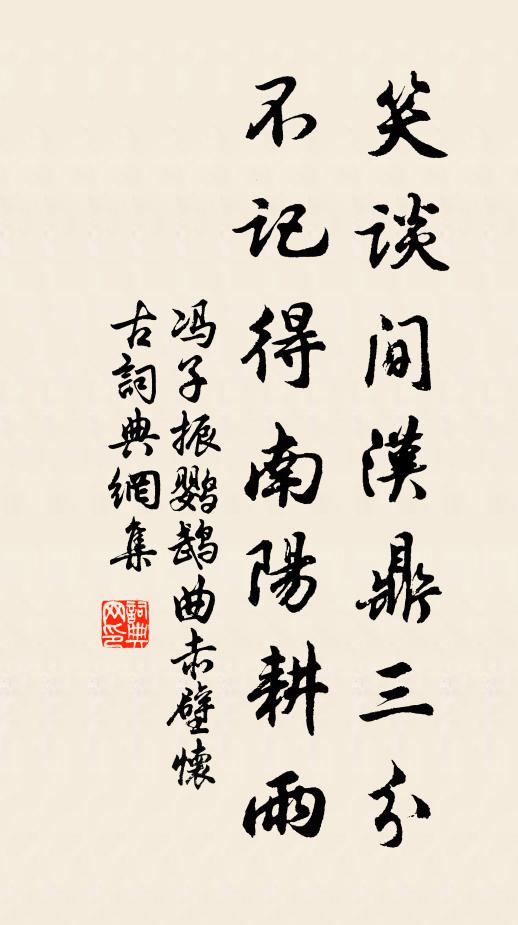 笑談间漢鼎三分
不记得南陽耕雨
冯子振鹦鹉曲赤壁懷
古詞典網集
詞典网印